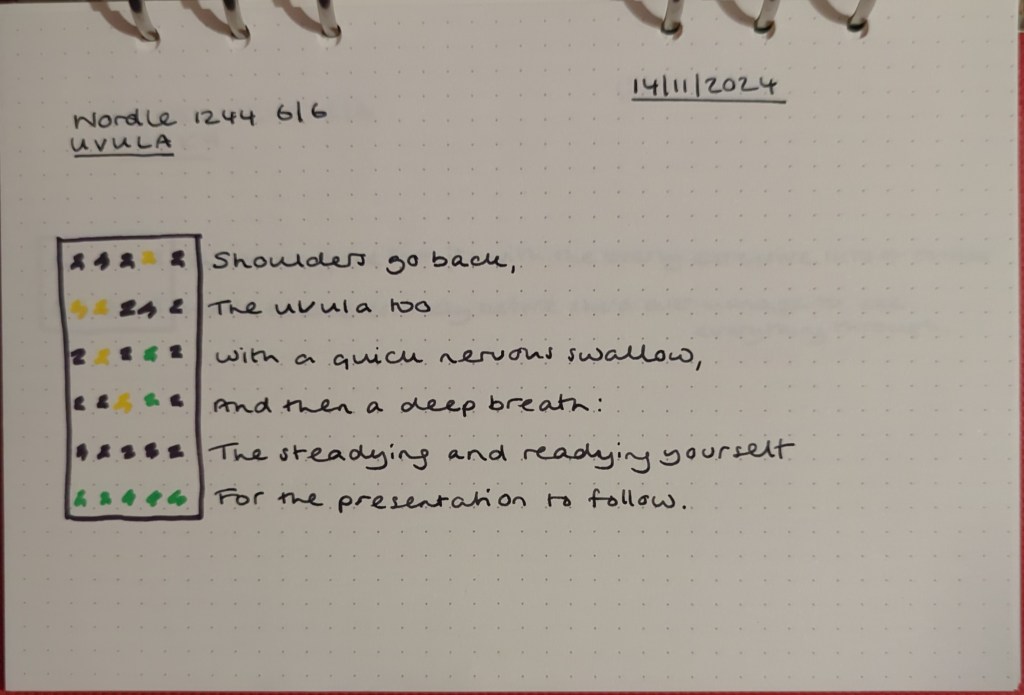 14/11/2024
Wordle 1244 6/6
UVULA
Shoulders go back,
The uvula too
with a quick nervous swallow,
And then a deep breath:
The steadying and readying yourself
For the presentation to follow.